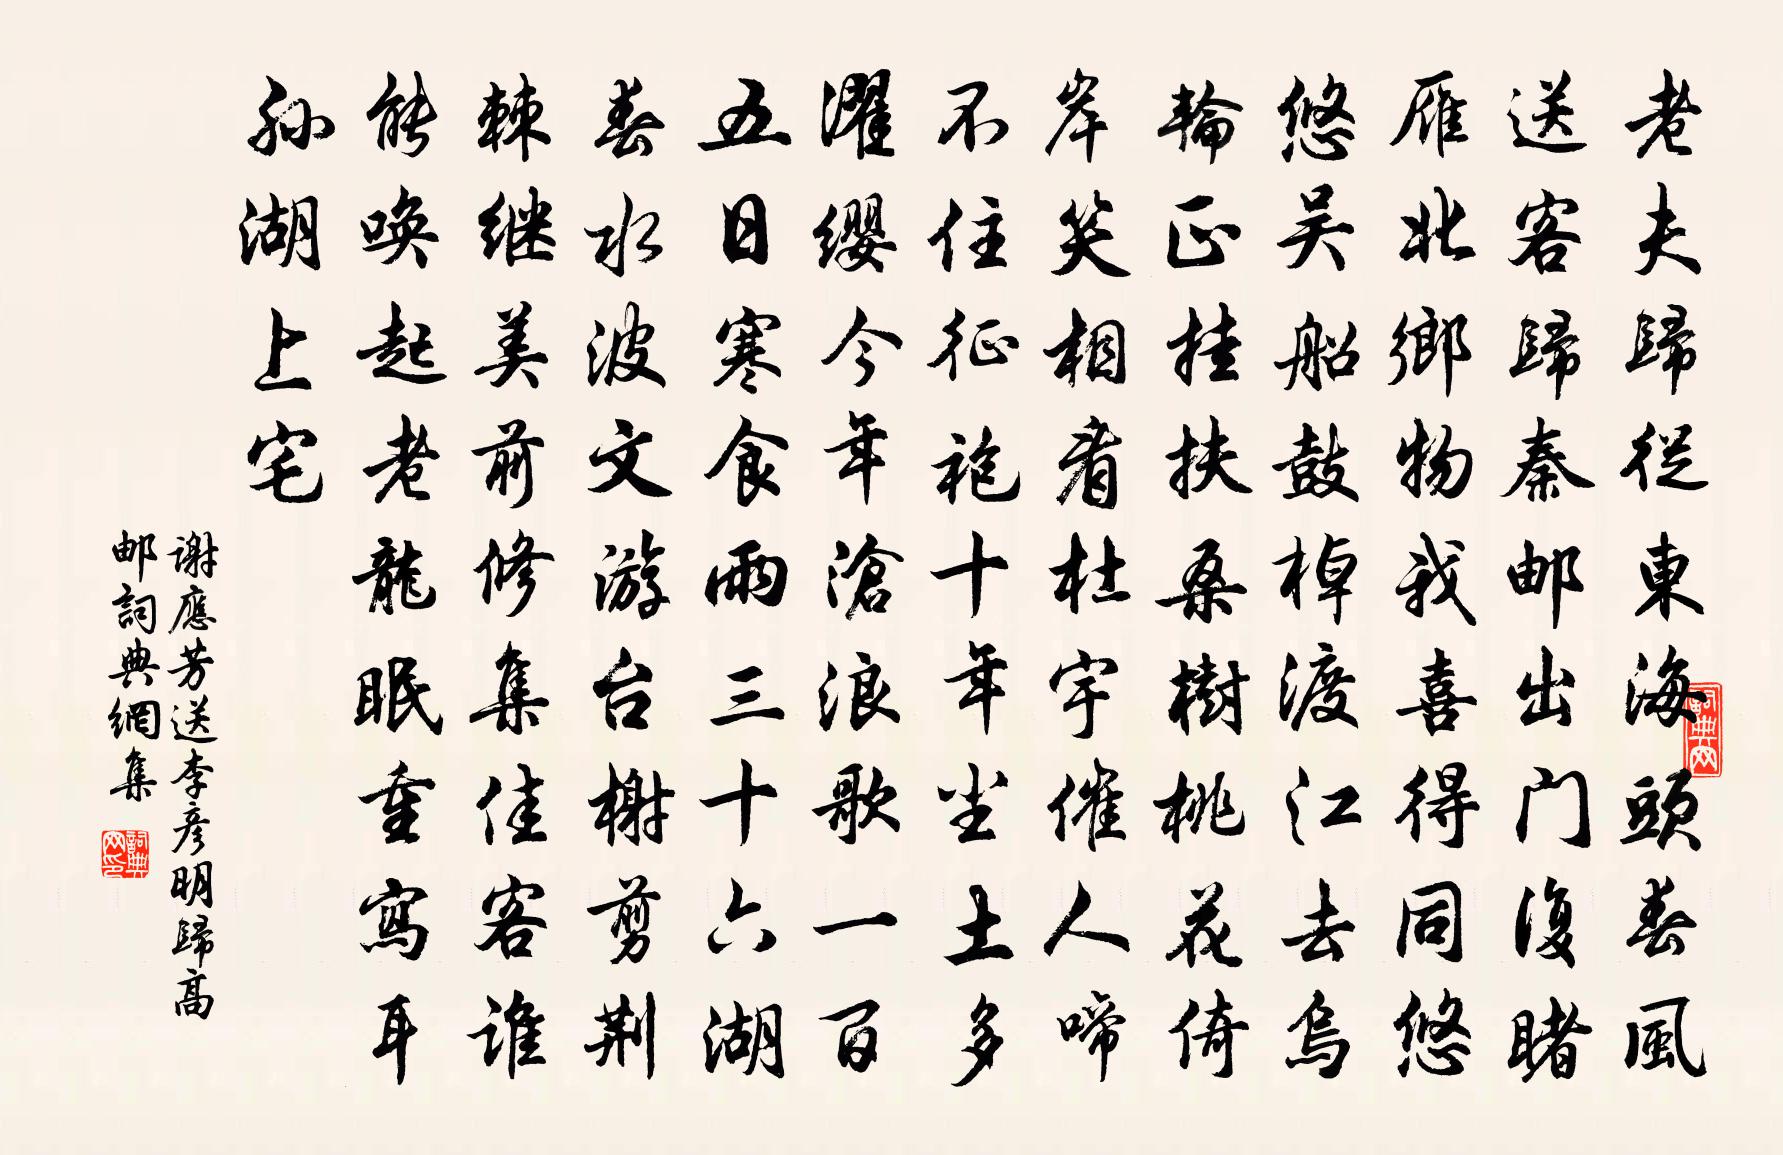 老夫歸從東海頭春風
送客歸秦邮出门復睹
雁北鄉物我喜得同悠
悠吴船鼓棹渡江去烏
輪正挂扶桑樹桃花倚
岸笑相看杜宇催人啼
不住征袍十年尘土多
濯缨今年滄浪歌一百
五日寒食雨三十六湖
春水波文游台榭剪荆
棘继美前修集佳客谁
能唤起老龍眠重寫耳
孙湖上宅
謝應芳送李彦明歸高
邮詞典網集